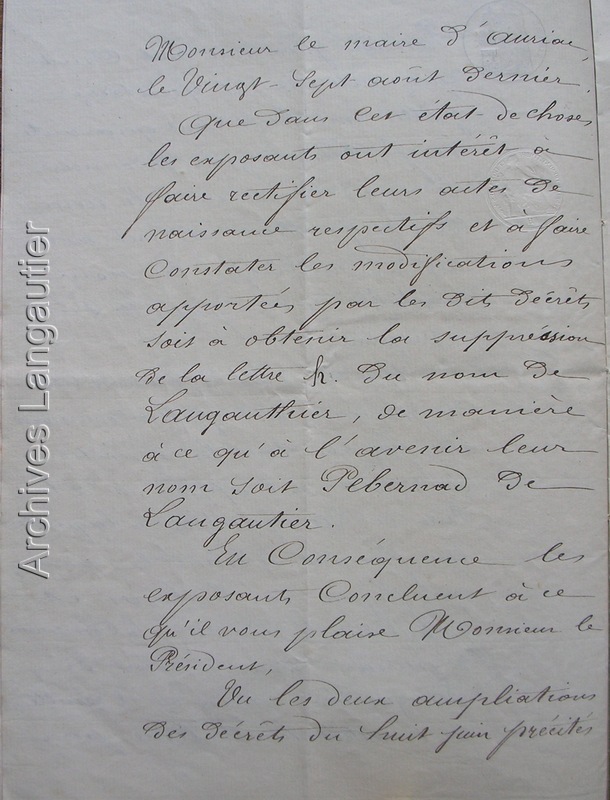 Monsieur le maire d'auriac,
le Vingt-Sept août dernier,
Que dans cet état de choses
les exposants ont intérêt a
faire rectifier leurs actes de
naissance respectifs et à faire
Constater les modifications
apportées par les dits décrêts
soit à obtenir la suppression
de la lettre h. du nom de
Langauthier, de manière
à ce qu'à l'avenir leur
nom soit Pébernad de
Langautier.
En Conséquence les
exposants Concluent à ce
qu'il vous plaise Monsieur le
Président,
Vu les deux ampliations
des décrêts du huit juin précités
Archives Langautier